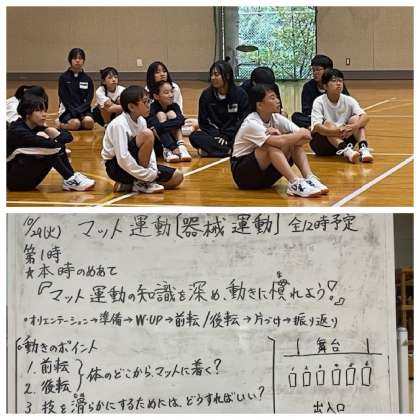 10/29(火) マット運動〔器械運動〕全12時予定
第1時
★本時のめあて
『マット運動の知識を深め、動きに慣れよう!』
•オリエンテーション→準備→W-UP→前転/後転→片づけ→振り返り
動きのポイント
1. 前転
2. 後転
体のどこから、マットに着く?
3. 技を滑らかにするためには、どうすればいい?
舞台
出入口